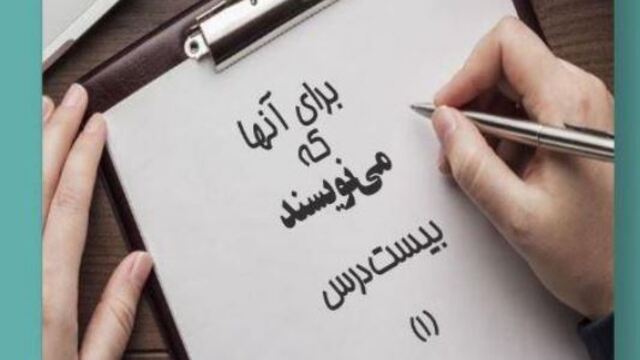 برای آنها
که
می‌نویسند
بیست درس
(۱)